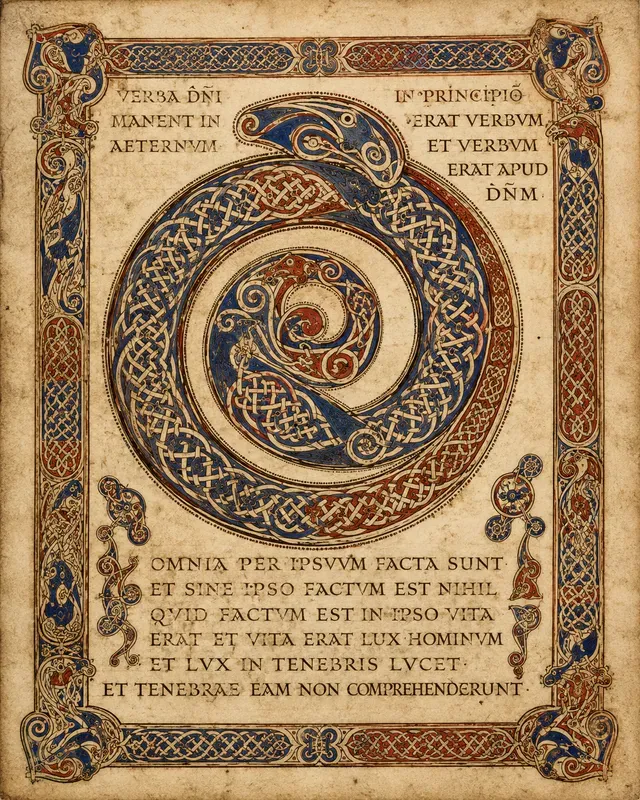 VERBA D̂ÑI
MANENT IN
AETERNVM
IN PRÍNCÍPIÕ
ERAT VERBVM
ET VERBVM
ERAT APUD
D̂ÑM
OMNIA PER IPSVVM FACTA SUNT
ET SINE IPSO FACTVM EST NIHIL
QVID FACTVM EST IN IPSO VITA
ERAT ET VITA ERAT LUX HOMINVM
ET LVX IN TENEBRIS LVCET·
ET TENEBRAE EAM NON COMPREHENDERUNT·